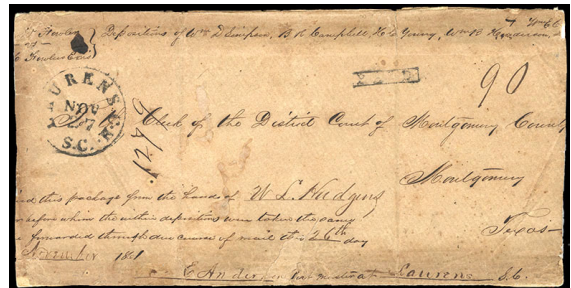 Fowler
Depositions of Wm D Simpson, B R Campbell, H C Young, Wm R Henderson
vs
Fowler Exors
PAID
90
LAURENS C.H.
NOV
27
S.C.
To Clerk of the District Court of Montgomery County
Montgomery
Texas
this package from the hands of W L Hudgens
before whom the within depositions were taken the same
forwarded through due course of mail this 26th day
November 1851
Laurens S.C.